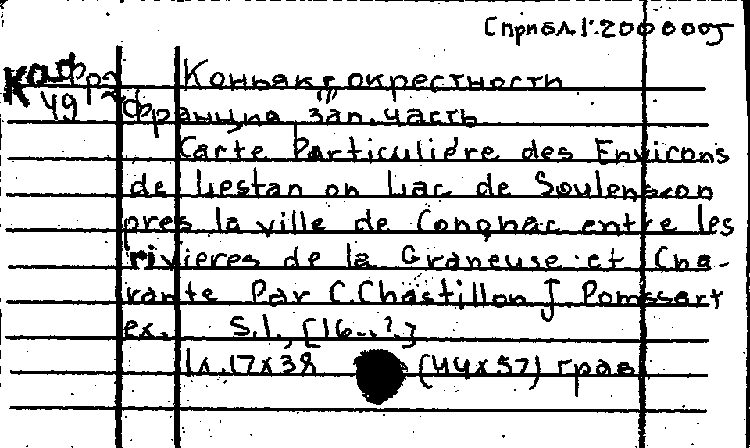 [прибл. 1:200000]
К0 Фр Коньяк, окрестности
49 Франция зап. часть
Carte Particuliére des Environs
de Lestan ou Lac de Soulenson
pres la ville de Congnac entre les
rivieres de la Graneuse et Cha-
rante Par C. Chastillon J. Pomssart
ex. S.l., [16..?]
1л. 17x38 (44x57) грав